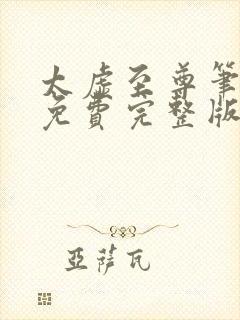 太虛至尊筆
免費完整版
亞薩瓦